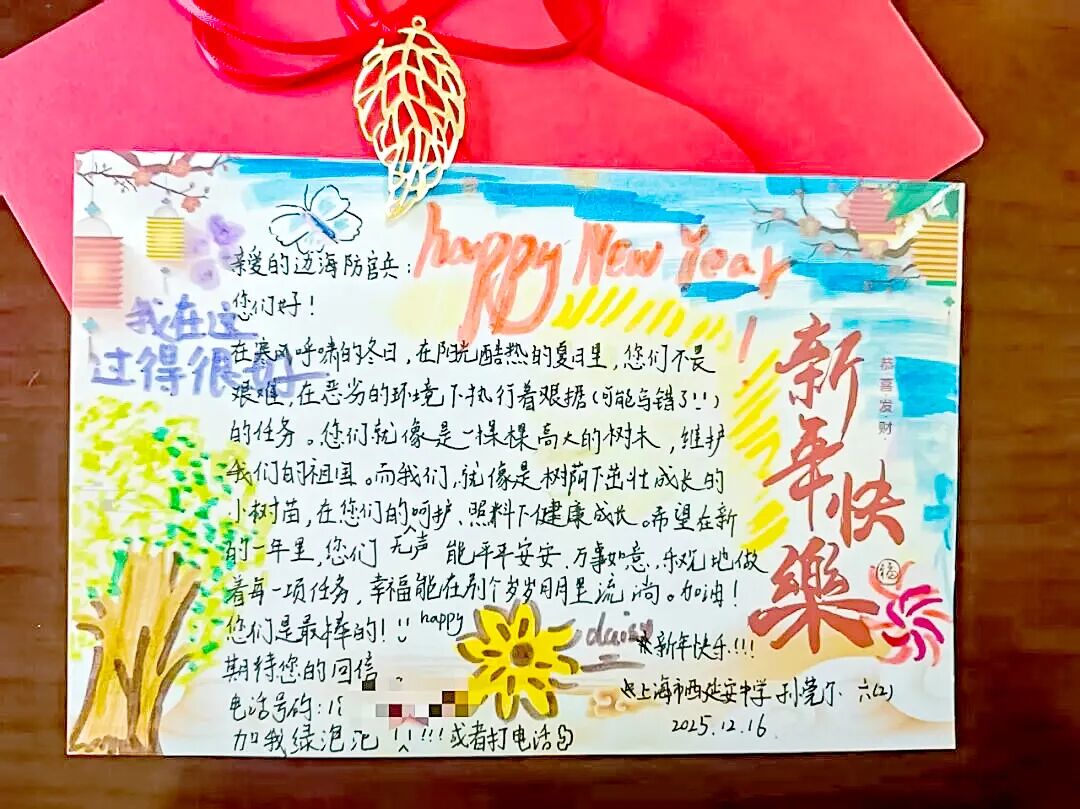 happy New Year!
亲爱的边海防官兵：
您们好！
我在这
过得很好
在寒风呼啸的冬日，在阳光酷热的夏日里，您们不畏
艰难，在恶劣的环境下执行着艰据(可能写错了!!)
的任务。您们就像是一棵棵高大的树木，维护
我们的祖国。而我们，就像是树荫下茁壮成长的
小树苗，在您们的无声呵护、照料下健康成长。希望在新
的一年里，您们能平平安安，万事如意，乐观地做
着每一项任务，幸福能在别个岁岁月月里流淌。加油！
您们是最棒的！ happy
期待您的回信
电话号码：1
加我绿泡泡!!!!!或者打电话
daisy
*新年快乐!!!
上海市西延安中学 刘莞尔 六(2)
2025.12.16
新年快樂
恭喜发财
福